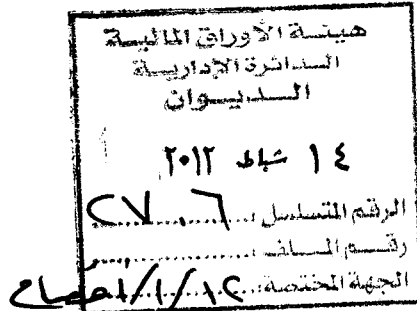 هيئة الأوراق المالية
الدائرة الإدارية
الديوان
١٤ شباط ٢٠١٢
الرقم المتسلسل: ٢٧٠٦
رقم الملف:
الجهة المختصة: